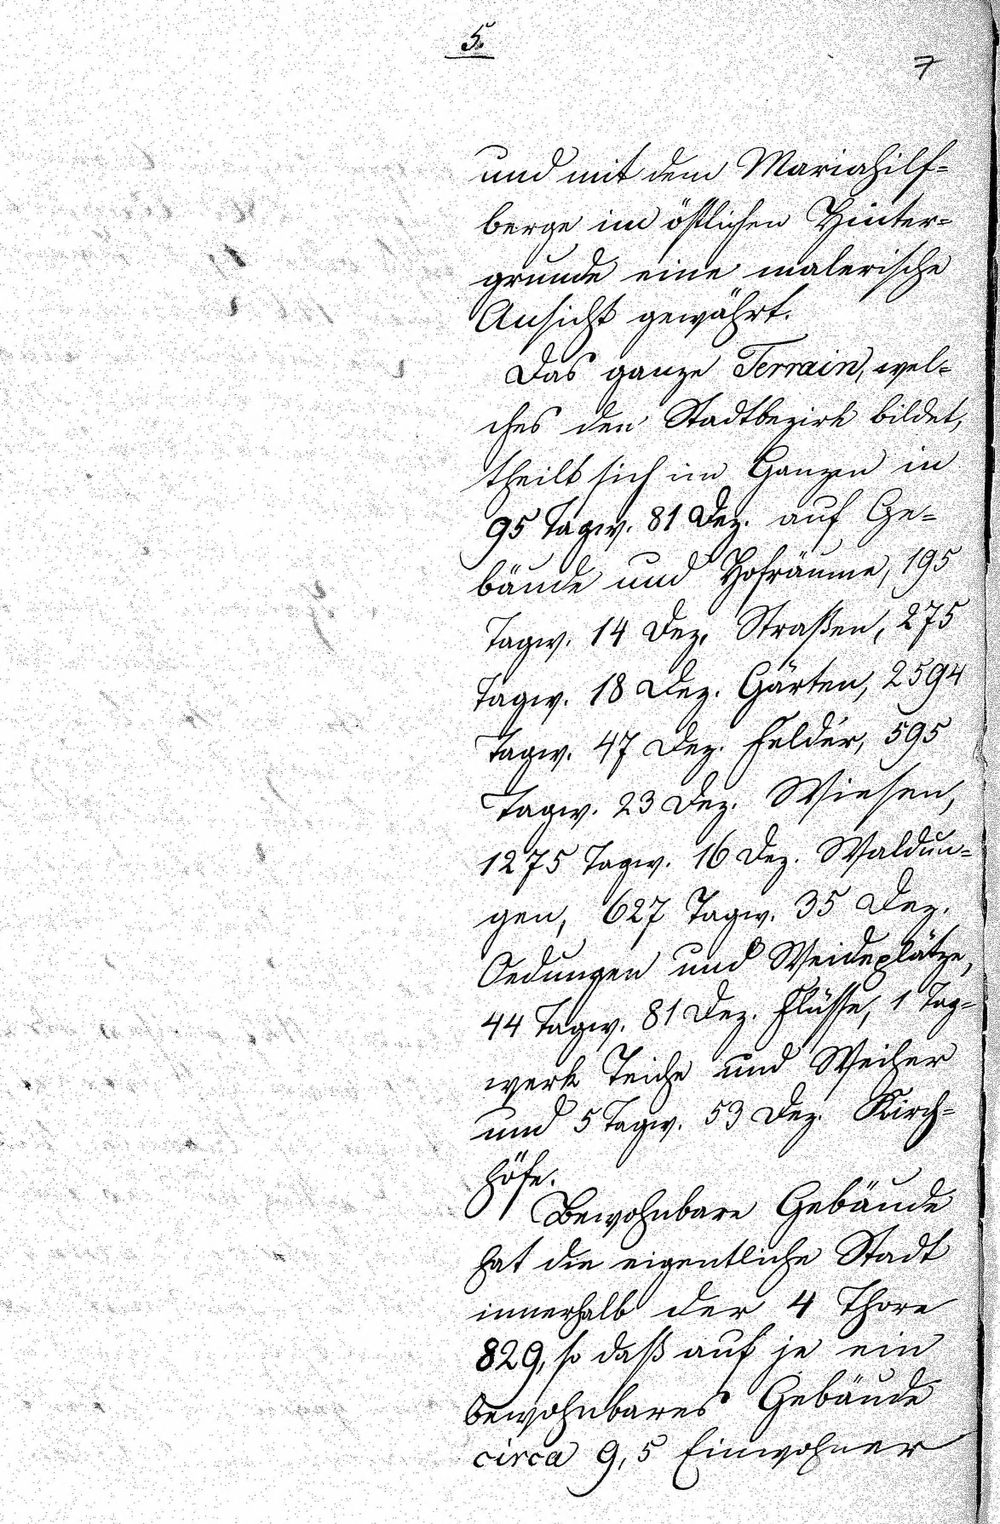 5.
7
und mit dem Mariahilf=
berge im östlichen Hinter=
grunde eine malerische
Ansicht gewährt.
Das ganze Terrain, wel=
ches den Stadtbezirk bildet,
theilt sich im Ganzen in
95 Tagw. 81 Dez. auf Ge=
bäude und Hofräume, 195
Tagw. 14 Dez. Straßen, 275
Tagw. 18 Dez. Gärten, 2594
Tagw. 47 Dez. Felder, 595
Tagw. 23 Dez. Wiesen,
1275 Tagw. 16 Dez. Waldun=
gen, 627 Tagw. 35 Dez.
Oedungen und Weideplätze,
44 Tagw. 81 Dez. Flüsse, 1 Tag=
werk Teiche und Weiher
und 5 Tagw. 53 Dez. Kirch=
höfe.
Bewohnbare Gebäude
hat die eigentliche Stadt
innerhalb der 4 Thore
829, so daß auf je ein
bewohnbares Gebäude
circa 9,5 Einwohner